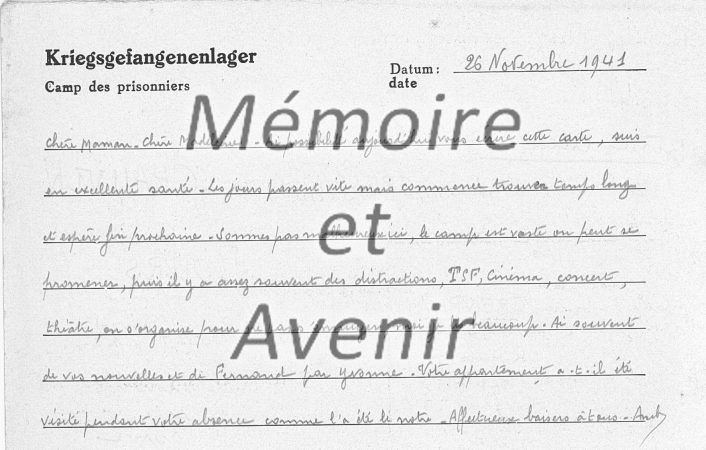 Kriegsgefangenenlager
Camp des prisonniers
Datum: 26 Novembre 1941
date
Mémoire
et
Avenir
Chère Maman - Chère Madeleine - Ai possibilité aujourd'hui vous écrire cette carte, suis
en excellente santé - Les jours passent vite mais commence trouver temps long
et espère fin prochaine - Sommes pas malheureux ici, le camp est vaste on peut se
promener, puis il y a assez souvent des distractions, TSF, Cinéma, concert,
théâtre, on s'organise pour ne pas beaucoup. Ai souvent
de vos nouvelles et de Fernand par Yvonne. Votre appartement a-t-il été
visité pendant votre absence comme l'a été le notre - Affectueux baisers à tous -